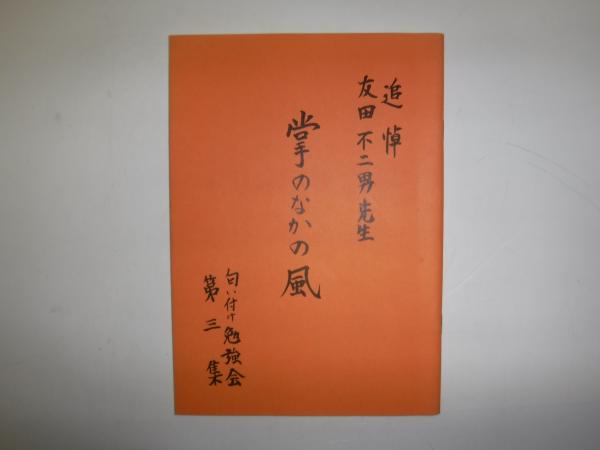 追悼
友田不二男先生
掌のなかの風
匂い付け勉強会
第三集